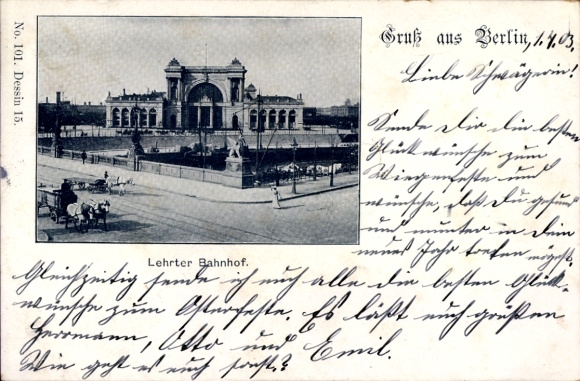 No. 101. Dessin 15.
Gruß aus Berlin, 1.4.03.
Liebe Schwägerin!
Sende Dir die besten
Glückwünsche zum
Wiegenfeste und
wünsche, daß Du gesund
und munter in Dein
neues Jahr treten mögest.
Lehrter Bahnhof.
Gleichzeitig sende ich euch alle die besten Glück-
wünsche zum Osterfeste. Es läßt euch grüßen
Herrmann, Otto und Emil.
Wie geht es euch sonst?